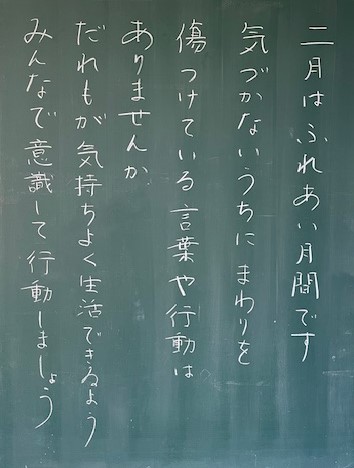 二月はふれあい月間です
気づかないうちにまわりを
傷つけている言葉や行動は
ありませんか
だれもが気持ちよく生活できるよう
みんなで意識して行動しましょう